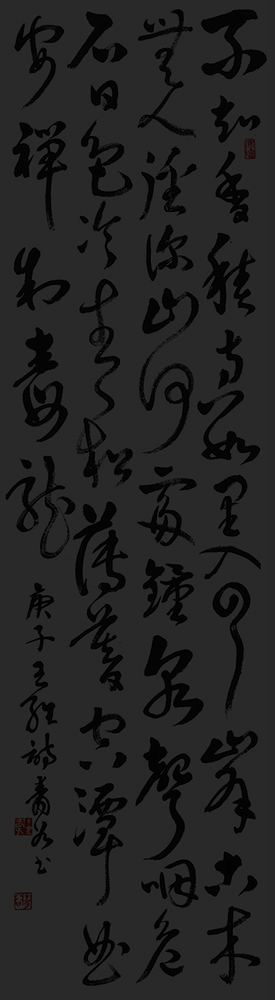 不知香積寺數里入雲峯古木
無人徑深山何處鐘泉聲咽危
石日色冷青松薄暮空潭曲
安禪制毒龍 庚子王維詩